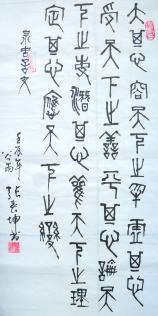 大其心容天下之物虛其心
受天下之善平其心論天
下之事潛其心觀天下之理
定其心應天下之變
壬辰年
谷雨